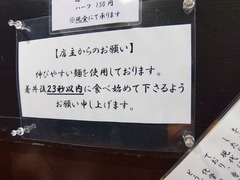 ハーフ 150円
※現金にて承ります
【店主からのお願い】
伸びやすい麺を使用しております。
着丼後23秒以内に食べ始めて下さるよう
お願い申し上げます。